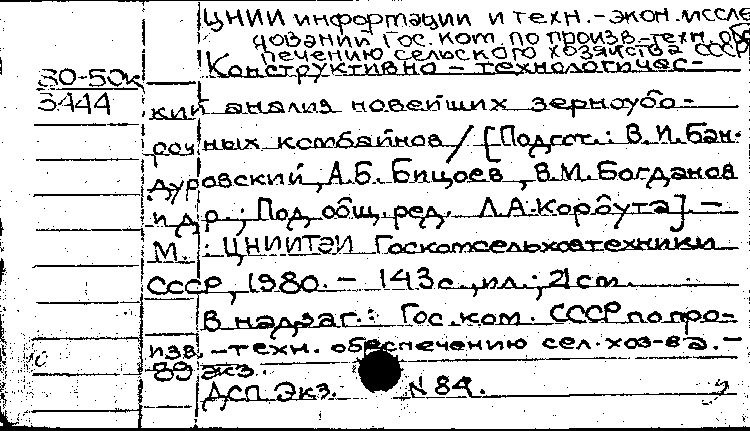 ЦНИИ информации и техн.-экон. иссле
дований Гос. ком. по произв.-техн. обес
печению сельского хозяйства СССР
80-50к Конструктивно - технологичес-
3444 кий анализ новейших зерноубо-
рочных комбайнов / [Подгот.: В.И. Бан-
дуровский, А.Б. Бицоев, В.М. Богданов
и др.; Под общ. ред. Л.А. Корбута]. -
М. : ЦНИИТЭИ Госкомсельхозтехники
СССР, 1980. - 143 с., ил.; 21 см.
В надзаг.: Гос. ком. СССР по про-
изв. - техн. обеспечению сел. хоз-ва. -
89 экз.
ДСП Экз. N 84.